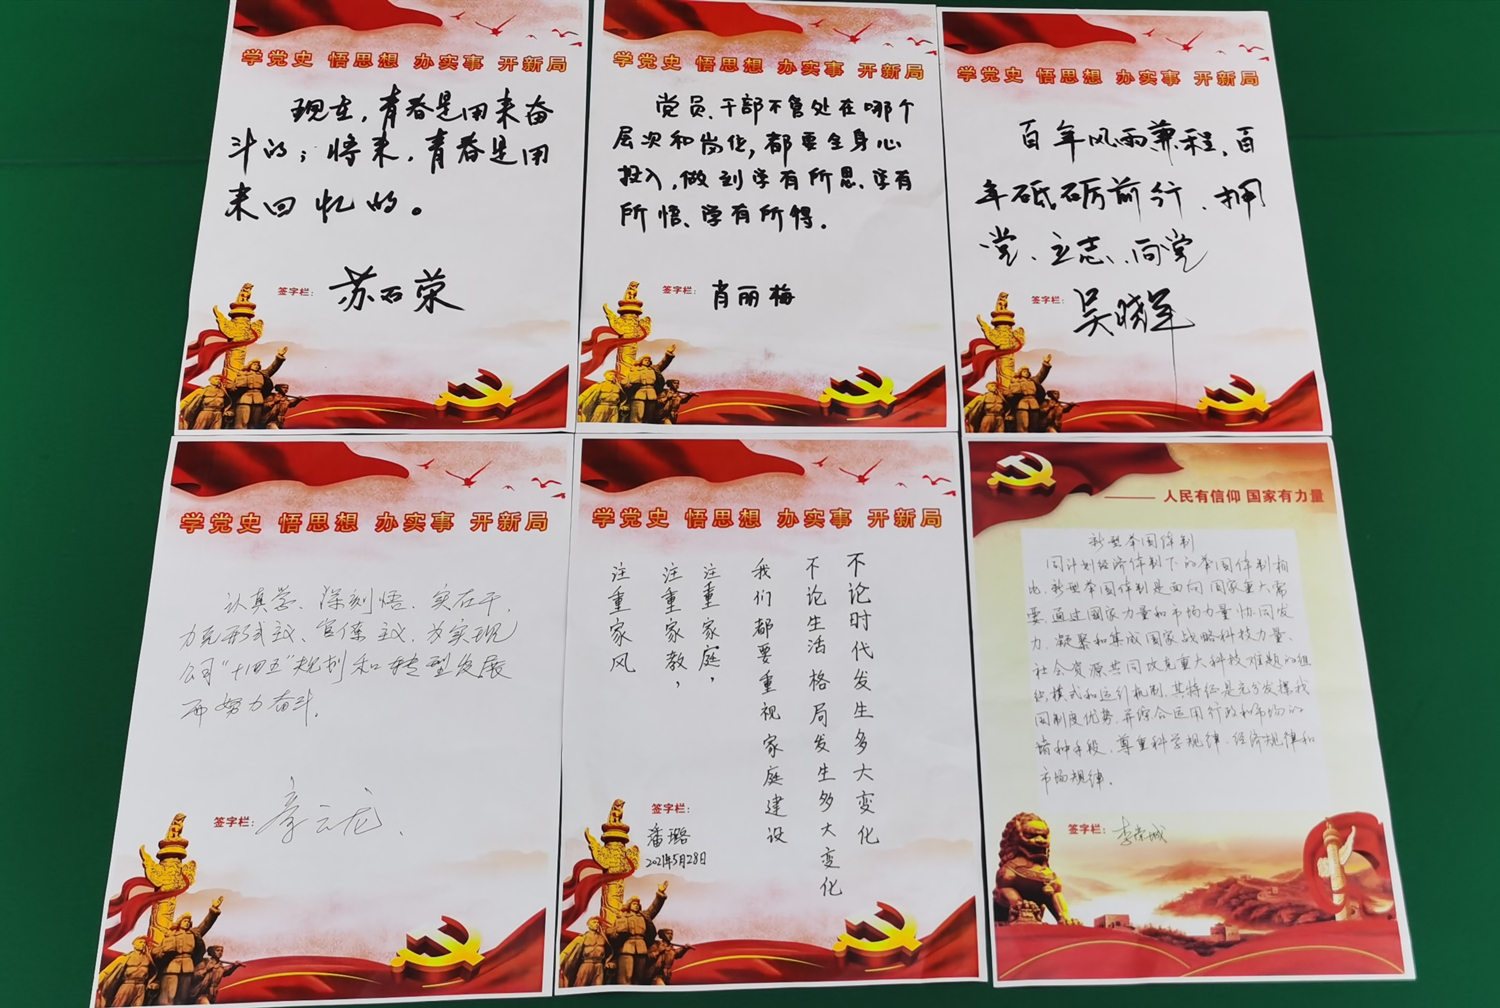 学党史 悟思想 办实事 开新局
现在，青春是用来奋
斗的；将来，青春是用
来回忆的。
签字栏：
苏石荣
学党史 悟思想 办实事 开新局
党员、干部不管处在哪个
层次和岗位，都要全身心
投入，做到学有所思、学有
所悟、学有所得。
签字栏：
肖丽梅
学党史 悟思想 办实事 开新局
百年风雨兼程，百
年砥砺前行、拥
党、立志、向党
签字栏：
吴晓军
学党史 悟思想 办实事 开新局
认真学、深刻悟、实在干，
力克形式主义、官僚主义，为实现
公司“十四五”规划和转型发展
而努力奋斗。
签字栏：
章云龙
学党史 悟思想 办实事 开新局
不论时代发生多大变化
不论生活格局发生多大变化
我们都要重视家庭建设
注重家庭，
注重家教，
注重家风
签字栏：
潘璐
2021年5月28日
人民有信仰 国家有力量
新型举国体制
同计划经济体制下的举国体制相
比，新型举国体制是面向国家重大需
要，通过国家力量和市场力量协同发
力，凝聚和集成国家战略科技力量、
社会资源共同攻克重大科技难题的组
织模式和运行机制，其特征是充分发挥我
国制度优势，并综合运用行政和市场的
种手段，尊重科学规律、经济规律和
市场规律。
签字栏：
李荣城